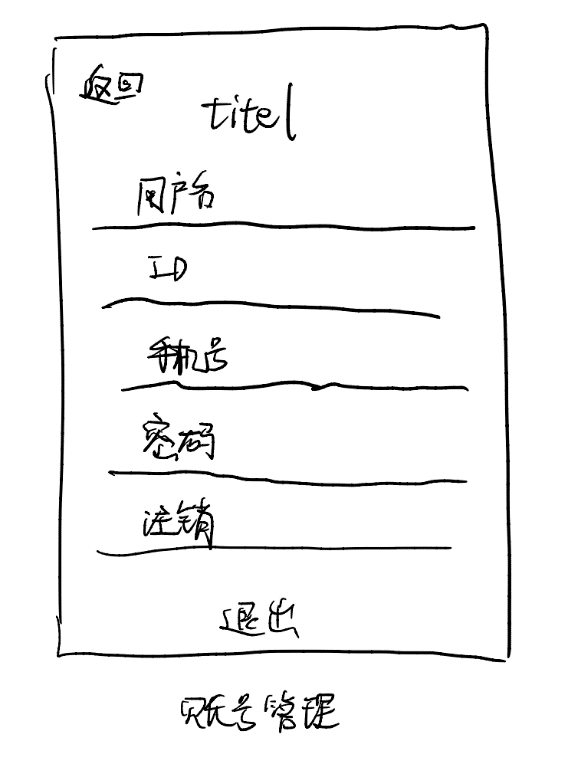 返回
titel
用户名
ID
手机号
密码
注销
退出
账号管理